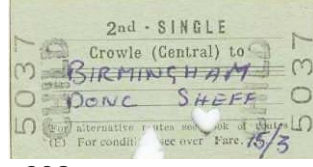 2nd - SINGLE
Crowle (Central) to
BIRMINGHAM
DONC SHEFF
For alternative routes see book of routes
(E) For conditions see over Fare. 15/3
5037
5037
CHILD
CHILD